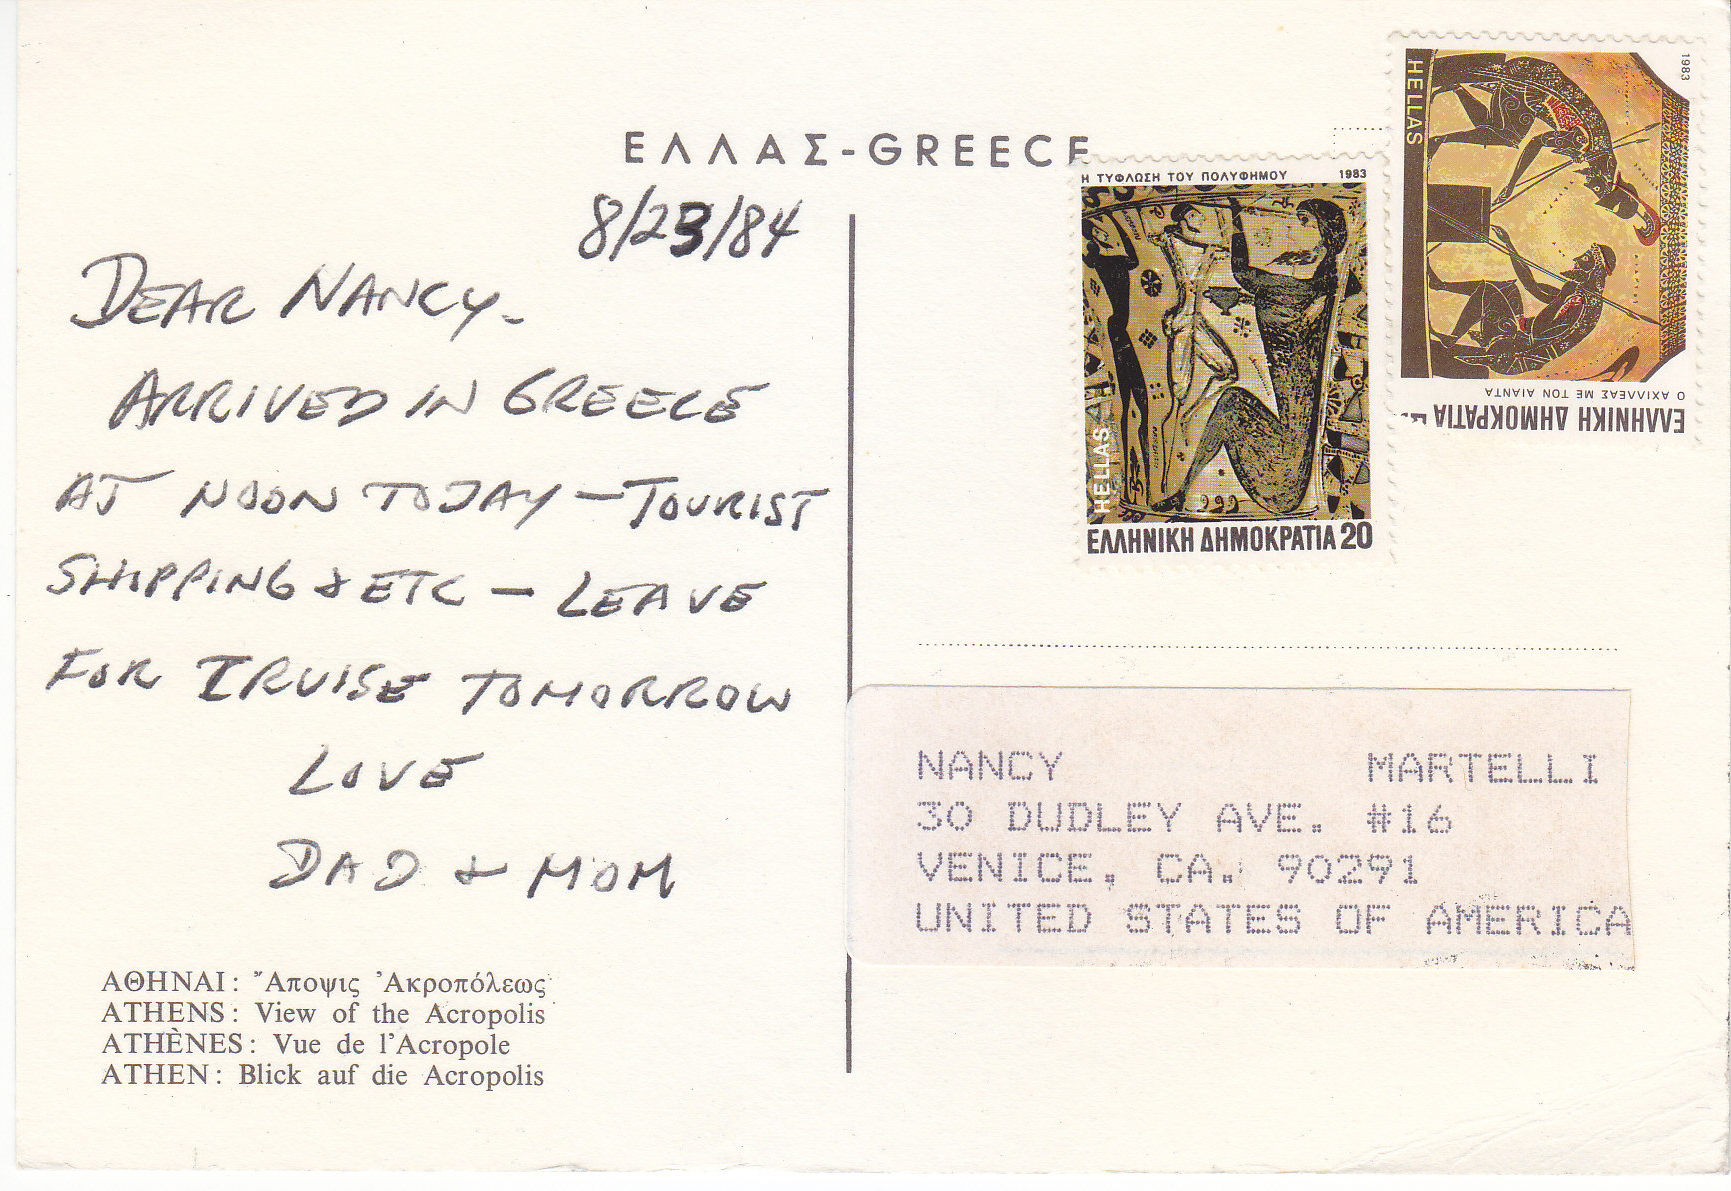 ΕΛΛΑΣ-GREECE
8/23/84
DEAR NANCY-
ARRIVED IN GREECE
AT NOON TODAY - TOURIST
SHIPPING & ETC - LEAVE
FOR CRUISE TOMORROW
LOVE
DAD & MOM
ΑΘΗΝΑΙ: Ἄποψις Ἀκροπόλεως
ATHENS: View of the Acropolis
ATHÈNES: Vue de l'Acropole
ATHEN: Blick auf die Acropolis
Η ΤΥΦΛΩΣΗ ΤΟΥ ΠΟΛΥΦΗΜΟΥ 1983
HELLAS
ΕΛΛΗΝΙΚΗ ΔΗΜΟΚΡΑΤΙΑ 20
1983
HELLAS
Ο ΑΧΙΛΛΕΑΣ ΜΕ ΤΟΝ ΑΙΑΝΤΑ
ΕΛΛΗΝΙΚΗ ΔΗΜΟΚΡΑΤΙΑ
NANCY MARTELLI
30 DUDLEY AVE. #16
VENICE, CA. 90291
UNITED STATES OF AMERICA